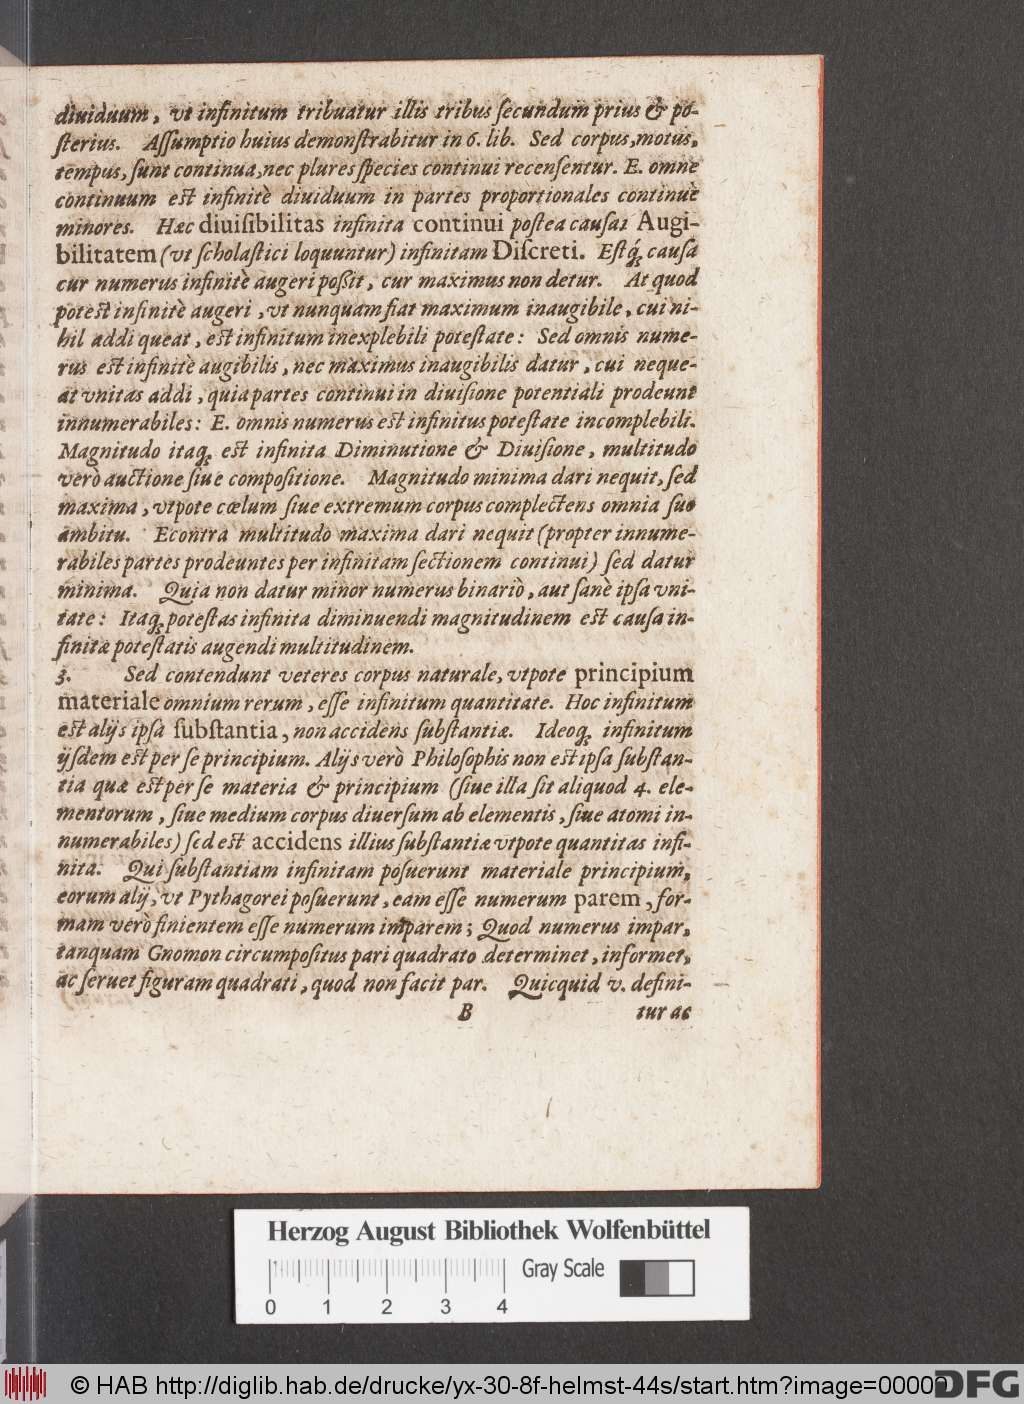 diuiduum, vt infinitum tribuatur illis tribus ſecundum prius & po-
ſterius. Aſſumptio huius demonſtrabitur in 6. lib. Sed corpus, motus,
tempus, ſunt continua, nec plures ſpecies continui recenſentur. E. omne
continuum est infinitè diuiduum in partes proportionales continuè
minores. Hæc diuiſibilitas infinita continui poſtea cauſat Augi-
bilitatem (vt ſcholaſtici loquuntur) infinitam Diſcreti. Eſtq́; cauſa
cur numerus infinitè augeri poßit, cur maximus non detur. At quod
potest infinitè augeri, vt nunquam fiat maximum inaugibile, cui ni-
hil addi queat, est infinitum inexplebili poteſtate: Sed omnis nume-
rus est infinitè augibilis, nec maximus inaugibilis datur, cui neque-
at vnitas addi, quia partes continui in diuiſione potentiali prodeunt
innumerabiles: E. omnis numerus est infinitus poteſtate incomplebili.
Magnitudo itaq; est infinita Diminutione & Diuiſione, multitudo
verò auctione ſiue compoſitione. Magnitudo minima dari nequit, ſed
maxima, vtpote cœlum ſiue extremum corpus complectens omnia ſuo
ambitu. Econtra multitudo maxima dari nequit (propter innume-
rabiles partes prodeuntes per infinitam ſectionem continui) ſed datur
minima. Quia non datur minor numerus binariò, aut ſanè ipſa vni-
tate: Itaq; poteſtas infinita diminuendi magnitudinem est cauſa in-
finitæ poteſtatis augendi multitudinem.
3. Sed contendunt veteres corpus naturale, vtpote principium
materiale omnium rerum, eſſe infinitum quantitate. Hoc infinitum
est alijs ipſa ſubſtantia, non accidens ſubſtantiæ. Ideoq; infinitum
ijſdem est per ſe principium. Alijs verò Philoſophis non est ipſa ſubſtan-
tia quæ est per ſe materia & principium (ſiue illa ſit aliquod 4. ele-
mentorum, ſiue medium corpus diuerſum ab elementis, ſiue atomi in-
numerabiles) ſed est accidens illius ſubſtantiæ vtpote quantitas infi-
nita. Qui ſubſtantiam infinitam poſuerunt materiale principium,
eorum alij, vt Pythagorei poſuerunt, eam eſſe numerum parem, for-
mam verò finientem eſſe numerum imparem; Quod numerus impar,
tanquam Gnomon circumpoſitus pari quadrato determinet, informet,
ac ſeruet figuram quadrati, quod non facit par. Quicquid v. defini-
B tur ac
Herzog August Bibliothek Wolfenbüttel
Gray Scale
0 1 2 3 4
© HAB http://diglib.hab.de/drucke/yx-30-8f-helmst-44s/start.htm?image=00009
DFG